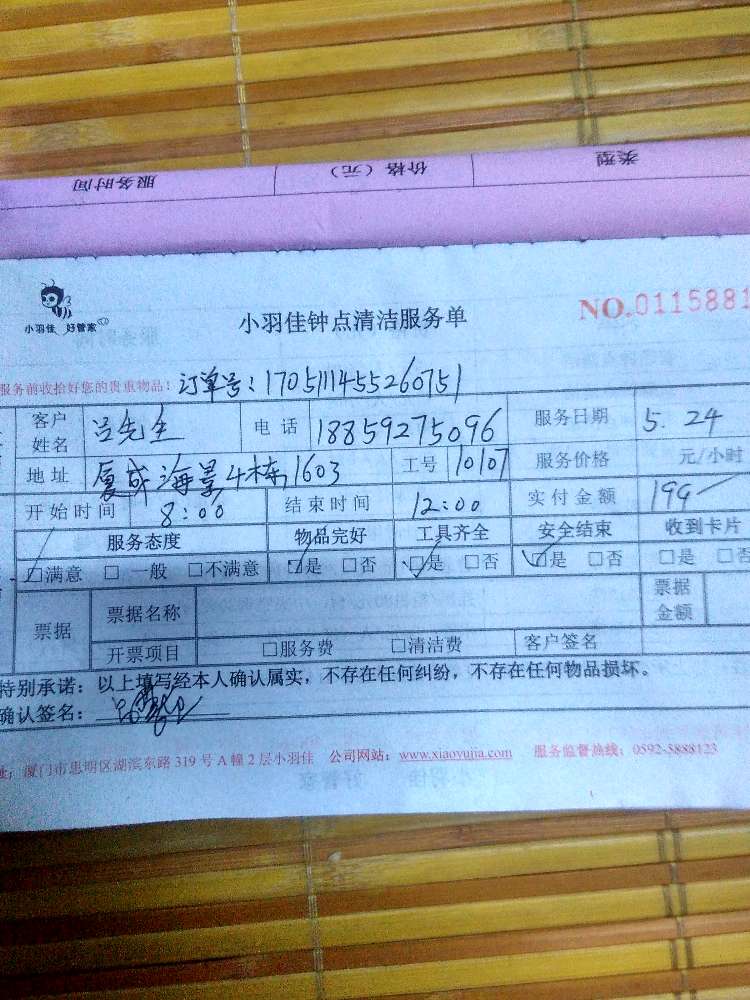 服务时间 价格（元） 类型
小羽佳 好管家 小羽佳钟点清洁服务单 NO.0115881
服务前收拾好您的贵重物品： 订单号：1705111455260751
客户姓名 吕先生 电 话 18859275096 服务日期 5.24
地 址 厦成海景4栋1603 工号 10107 服务价格 元/小时
开始时间 8:00 结束时间 12:00 实付金额 199
服务态度 物品完好 工具齐全 安全结束 收到卡片
□满意 □ 一般 □不满意 □是 □否 □是 □否 □是 □否 □是 □否
票据 票据名称 票据金额
开票项目 □服务费 □清洁费 客户签名
特别承诺：以上填写经本人确认属实，不存在任何纠纷，不存在任何物品损坏。
确认签名：
址：厦门市思明区湖滨东路 319 号 A 幢 2 层小羽佳 公司网站：www.xiaoyujia.com 服务监督热线：0592-5888123